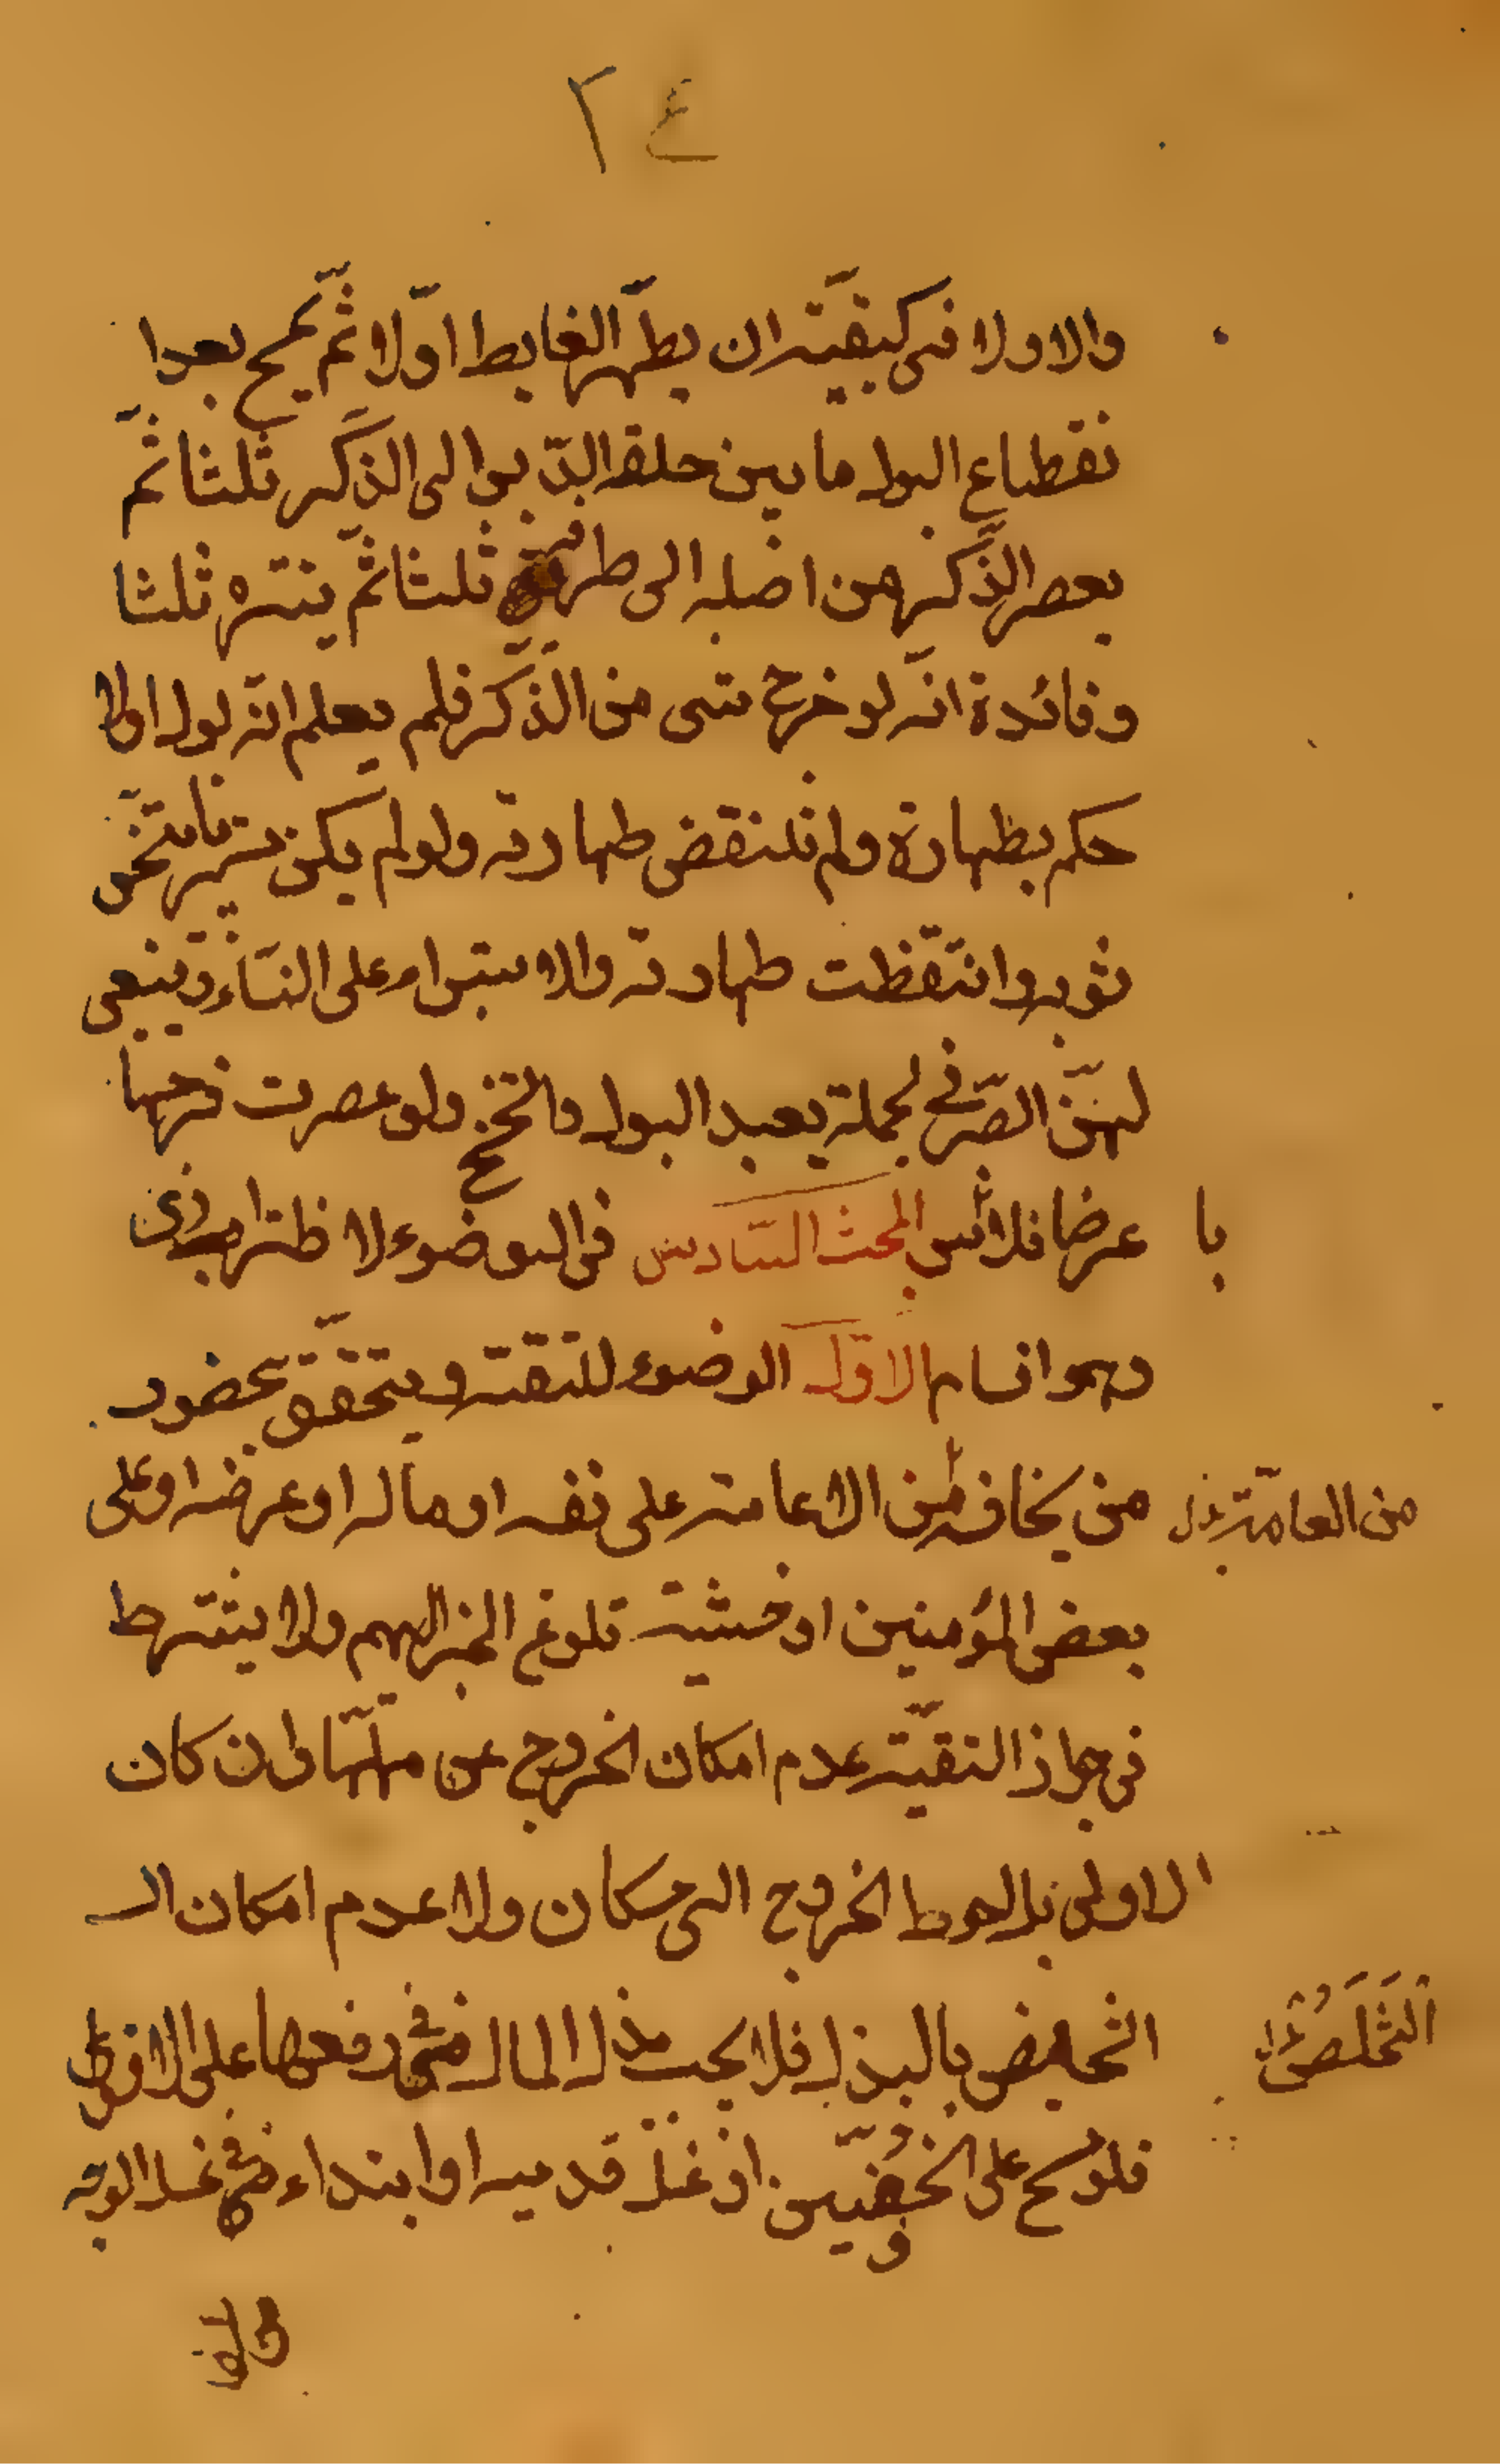 ٢٤
والاولا فى كيفيّته ان يطهّر الغايط اوّلا ثمّ يمسح بعد ا
نقطاع البول ما بين حلقه الدّبر الى الذّكر ثلثا ثمّ
يعصر الذّكر من اصله الى طرفه ثلثا ثمّ ينتره ثلثا
وفائدة انّه لو خرج شى من الذّكر فلم يعلم انّه بول اولا
حكم بطهارة ولم تنقض طهارته ولو لم يكن
ثوبه وانتقظت طهارته والاستبراء على النّساء وينبغى
لهنّ الصّبر فى لجملة بعد البول والتنحنح ولو عصرت فرجها
با عرضا فلا باس المبحث السّادس فى الوضوء لا ظتراردى
وهو اقسام الاوّل الوضوء للتقيّة ويتحقّق بحضور
من يخاف من الاعامة على نفسه او ماله او عرضه او على
من العامّة بدل
بعض المؤمنين او خشيته تلوغ الخبر اليهم ولا يشترط
فى جواز التقيّة عدم امكان الخروج عن محلّها وان كان
الاولى بل الاحوط الخروج الى مكان ولا عدم امكان الـ
التخليص بالبذل فلا يجب بذل المال فى دفعها على الاقوى
التّخلّص بدل
فلو مسح على الخفّين او غسل قدميه او ابتداء فى غسل الوجه